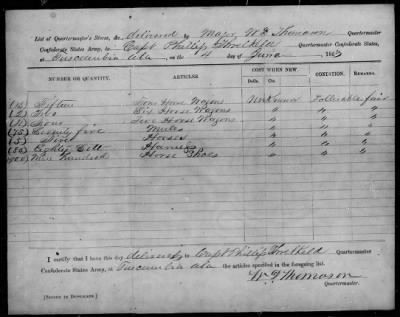 List of Quartermaster's Stores, &c., delivered by Major W D Thomason Quartermaster
Confederate States Army, to Capt Phillip Threlkeld Quartermaster Confederate States,
at Tuscumbia Ala, on the 4 day of June 1863
NUMBER OR QUANTITY. ARTICLES. COST WHEN NEW. CONDITION. REMARKS.
Dolls. Cts.
(15) Fifteen Four Horse Wagons Unknown Tollerable fair
(2) Two Six Horse Wagons " "
Two Horse Wagons " "
(75) Seventy five Mules " "
(5) Five Horses " "
(80) Eighty Sett Harness " "
(900) Nine hundred Horse Shoes " "
I certify that I have this day delivered to Capt Phillip Threlkeld Quartermaster
Confederate States Army, at Tuscumbia Ala the articles specified in the foregoing list.
W D Thomason
Quartermaster.
[SIGNED IN DUPLICATE.]